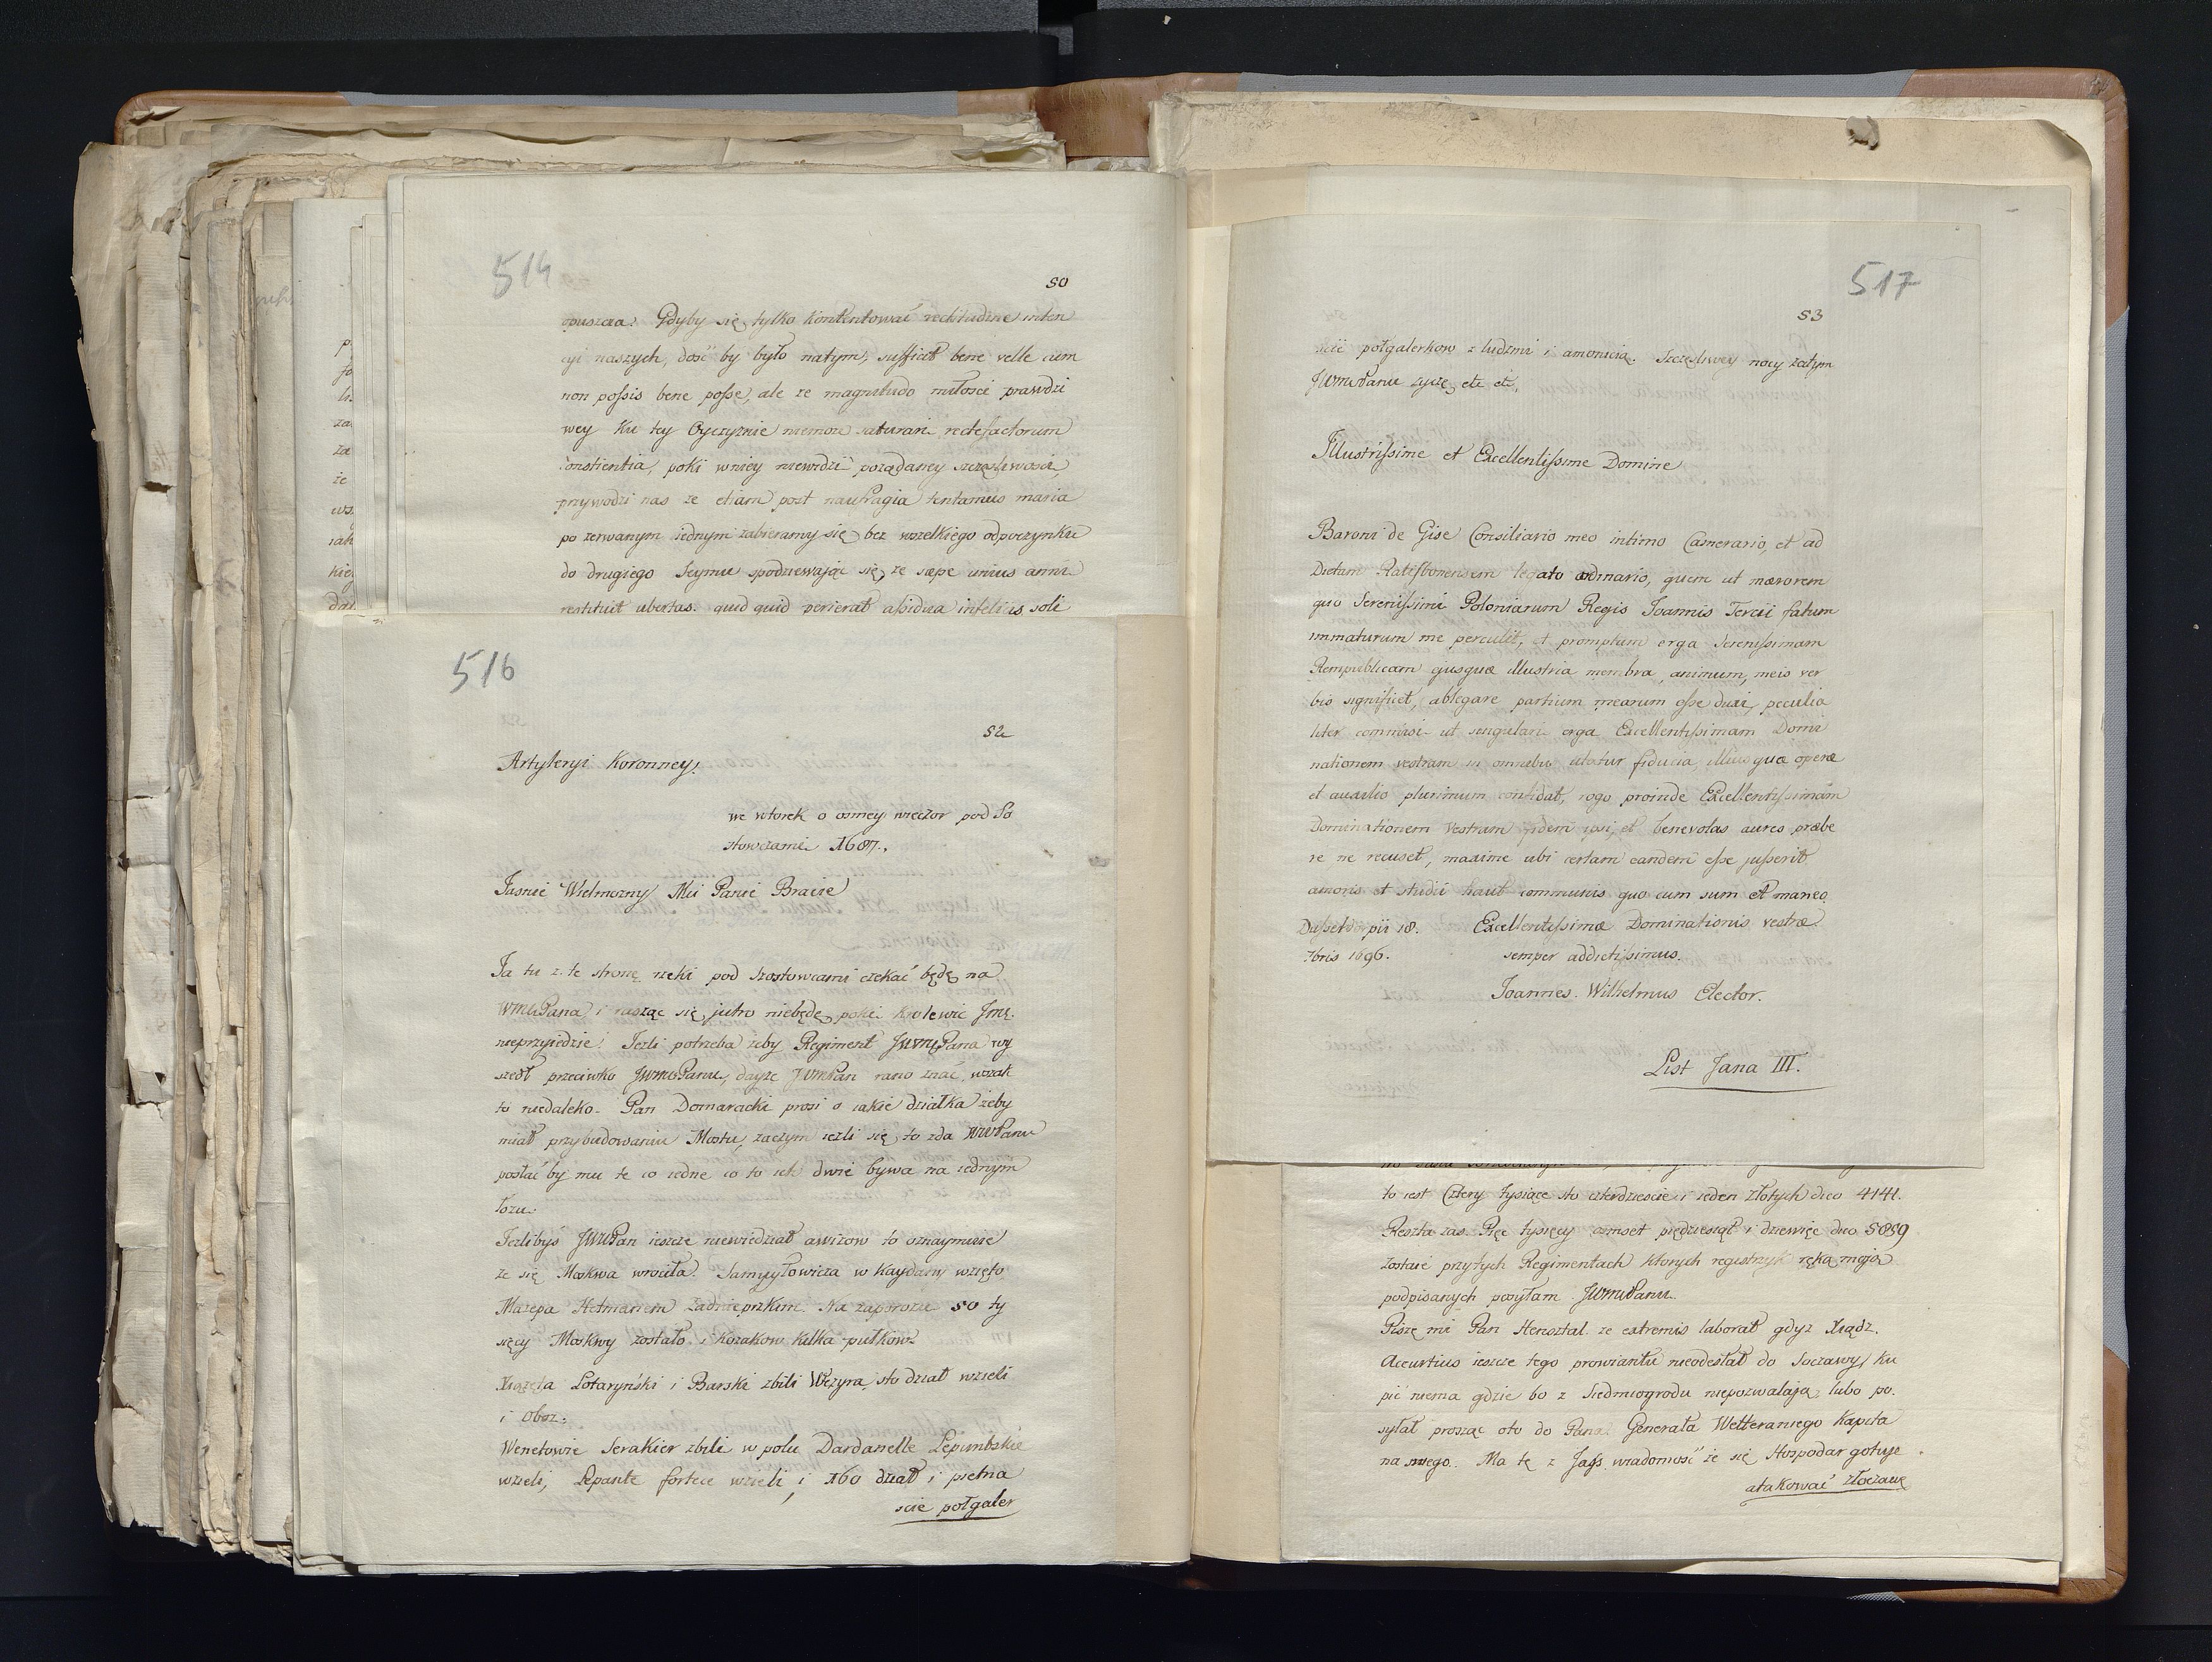 514
50
opuszcza. Gdyby się tylko kontentować rectitudine inten
cyi naszych, dość by było natym, sufficit bene velle cum
non possis bene posse, ale ze magnitudo miłosci prawdzi
wey ku tey Oyczyznie niemoze saturari rectefactorum
constientia, poki wniey niewidzi pożądaney szczęsliwosci,
przywodzi nas ze etiam post naufragia tentamus maria
po zerwanym iednym zabieramy się bez wszelkiego odpoczynku
do drugiego Seymu spodziewając się, ze sæpe unius anni
restituit ubertas. quid quid perierat assidua infelicis soli
516
52
Artyleryi Koronney.
we wtorek o osmey wieczor pod So
stowcami 1687.
Jasnie Wielmozny Mci Panie Bracie
Ja tu z te stronę rzeki pod Szostowcami czekać będę na
WMMPana i rusząc się jutro niebędę poki Krolewic Jmę.
nieprzyiedzie. Jezli potrzeba zeby Regiment JWMPana wy
szedł przeciwko JWMPanu, dayze JWMPan rano znać, wszak
to niedaleko. Pan Domaracki prosi o iakie działka zeby
miał przybudowaniu Mostu, zaczym iezli się to zda WMPanu
posłać by mu te co iedne co to ich dwie bywa na iednym
łozu.
Jezlibyś JWMPan ieszcze niewiedział awizow to oznaymuię
ze się Moskwa wrociła. Samuyłowicza w kaydany wzięto
Mazepa Hetmanem Zadnieprskim. Na zaporozu 50 ty
sięcy Moskwy zostało i Kozakow kilka pułkow.
Xiązęta Lotaryński i Barski zbili Wezyra, sto dział wzieli
i oboz.
Wenetowie Serakier zbili w polu Dardanelle Lepantskie
wzieli, Lepante fortece wzieli i 160 dział i pietna
scie połgaler
517
53
scie połgalerkow z ludzmi i amonicią. Szczęsliwey nocy zatym
JWMMPanu zyczę etc etc.
Illustrissime et Excellentissime Domine
Baroni de Gise Consiliario meo intimo Camerario, et ad
Dietam Ratisbonensem legato ordinario, quem ut mœrorem
quo Serenissimi Poloniarum Regis Joannis Tercii fatum
immaturum me perculit, et promptum erga Serenissimam
Rempublicam ejusque illustria membra, animum, meis ver
bis significet, ablegare partium mearum esse duxi, peculia
riter commisi ut singulari erga Excellentissimam Domi
nationem vestram in omnibus utatur fiducia, illius que operæ
et auxilio plurimum confidat, rogo proinde Excellentissimam
Dominationem Vestram fidem ipsi, et benevolas aures præbe
re ne recuset, maxime ubi certam eandem esse jusserit
amoris et studii haut communis quo cum sum et maneo
Dusseldorpii 18. Excellentissimæ Dominationis vestræ
7bris 1696. semper addictissimus.
Joannes Wilhelmus Elector.
List Jana III.
to iest Cztery tysiące sto czterdziescie i ieden złotych dico 4141.
Reszta zas Pięc tysięcy osmset pięćdziesiąt i dziewięc dico 5859
zostaie przytych Regimentach ktorych regestrzyk ręką moją
podpisanych posyłam JWMMPanu.
Pisze mi Pan Hensztal ze extremis laborat gdyz Xiądz.
Accurtius ieszcze tego prowiantu nieodesłał do Soczawy, ku
pić niema gdzie bo z Siedmiogrodu niepozwalają, lubo po.
syłał prosząc oto do Pana Generała Wetteraniego Kapita
na swego. Ma tę z Jass wiadomość ze się Hospodar gotuje
atakować Złoczawę